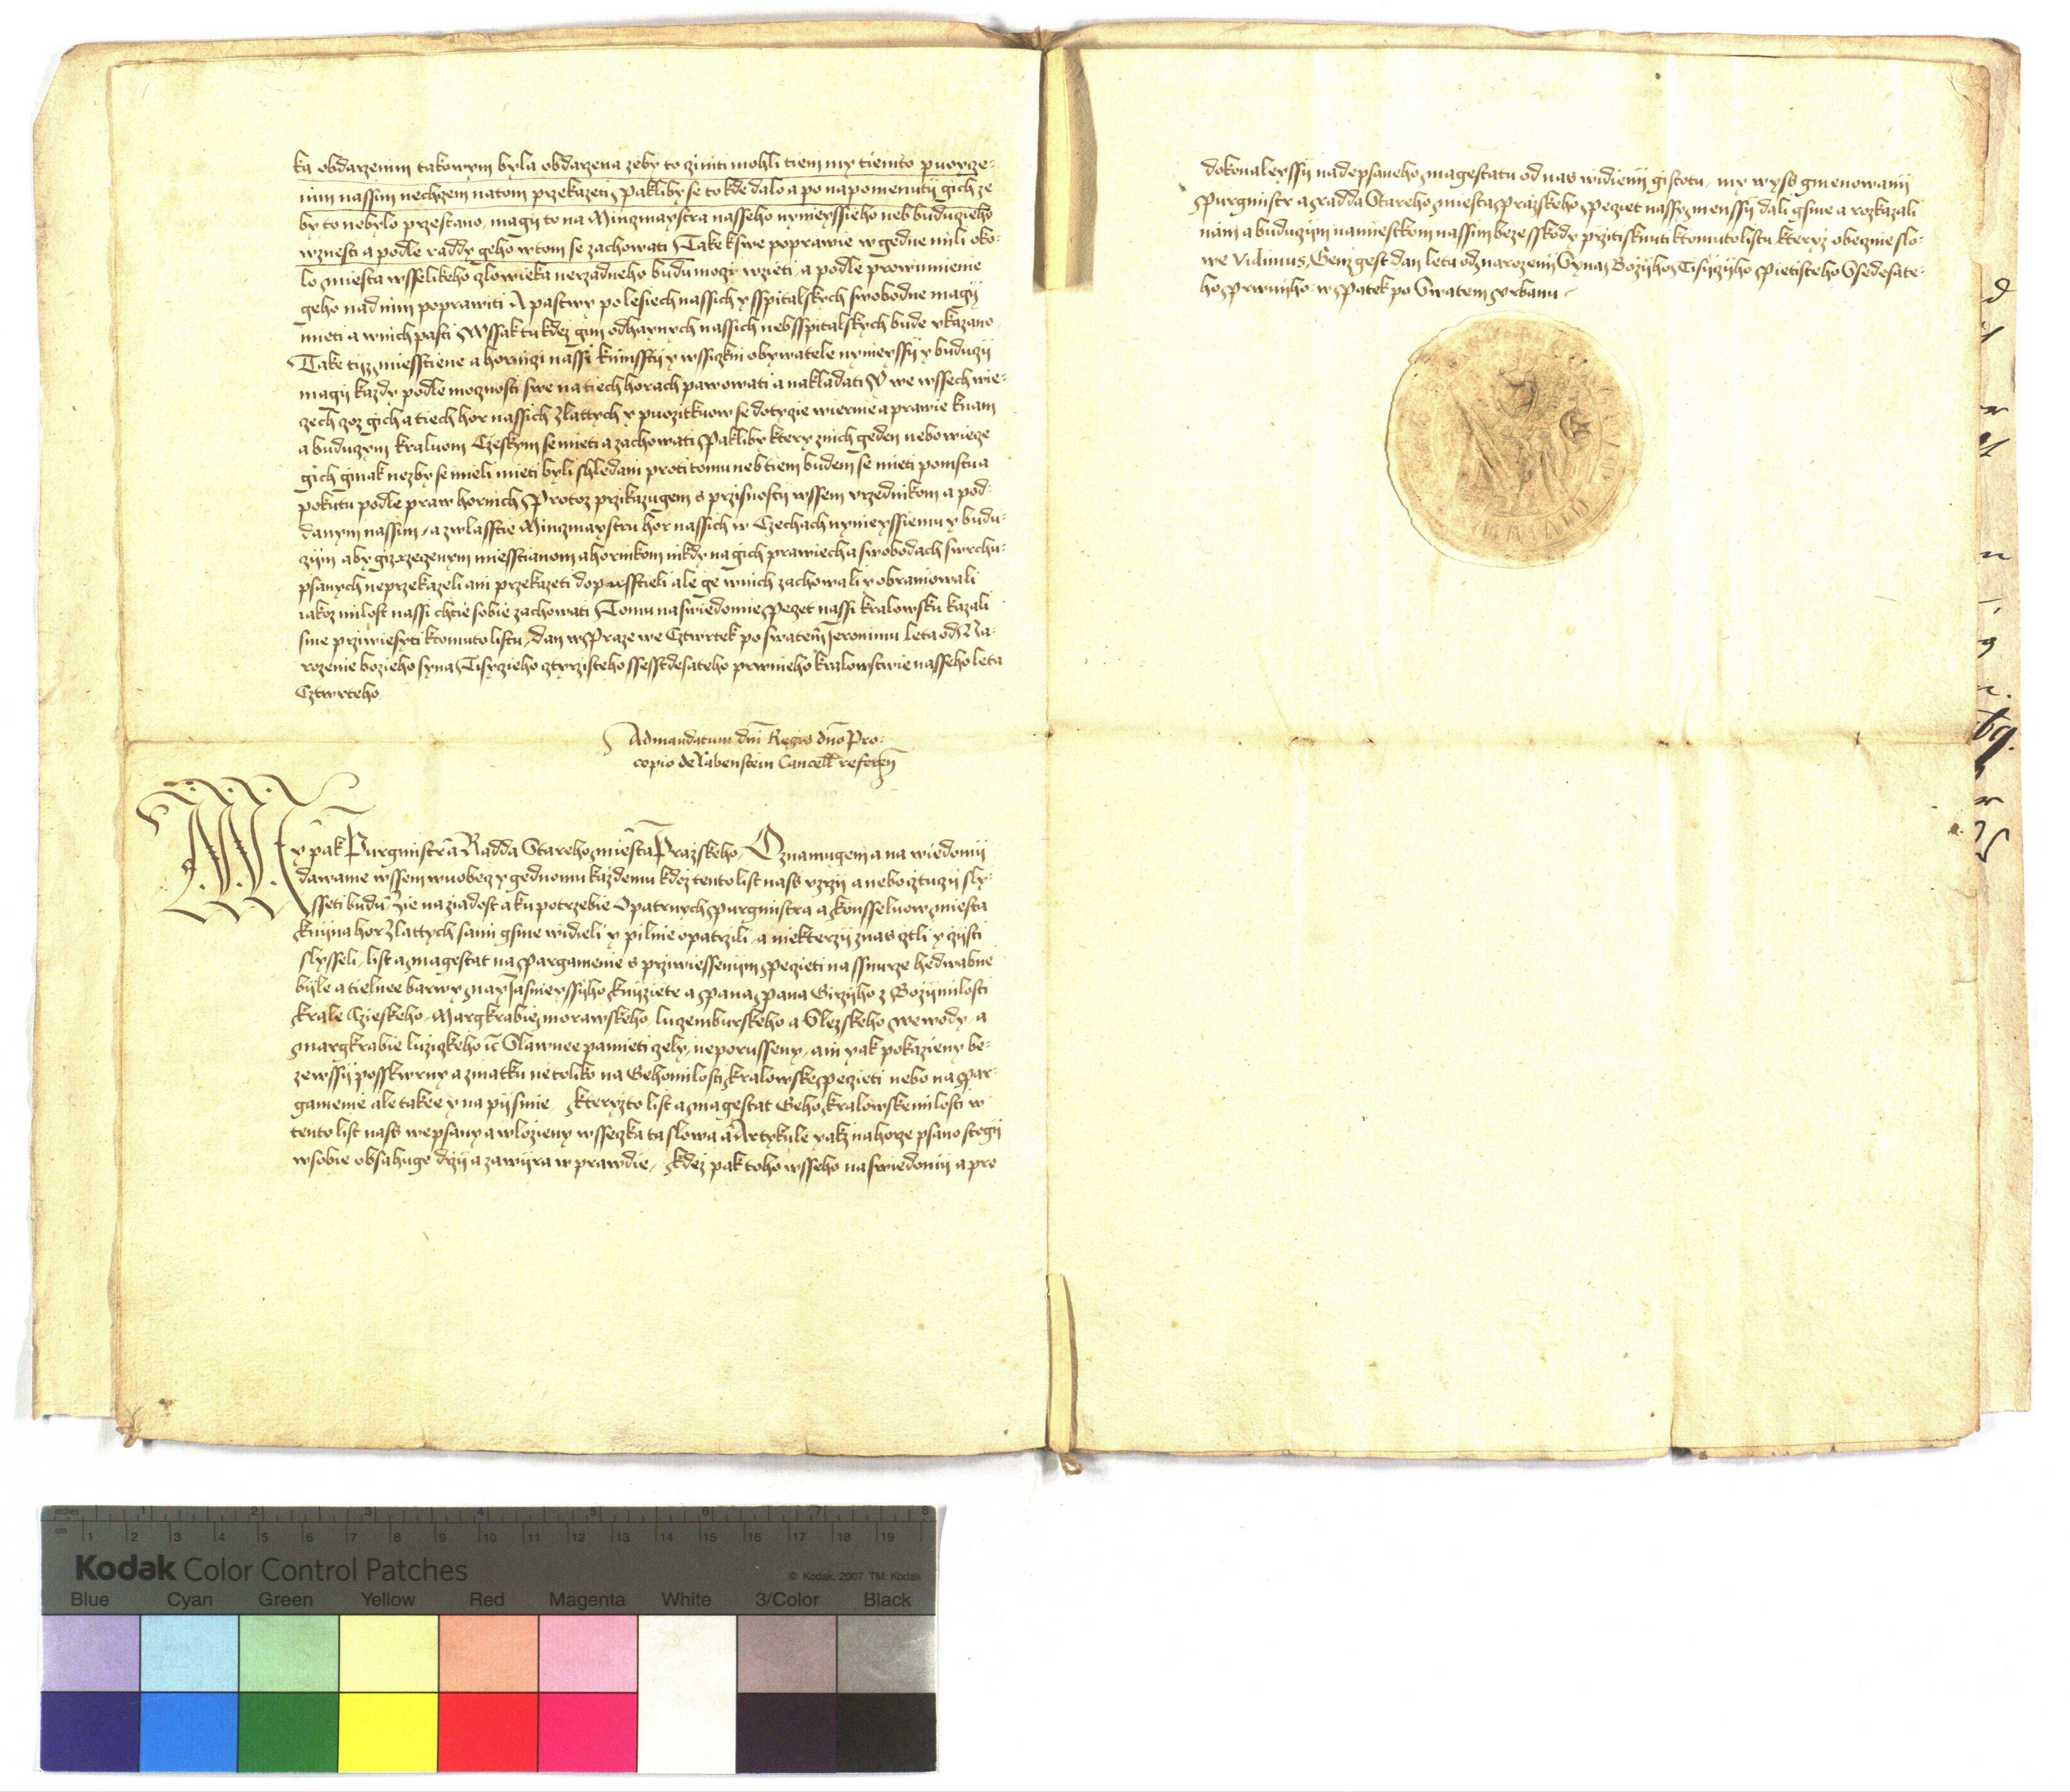 ka obdarzenim takowym byla obdarzena zeby to ziniti mohli tiem my tiemto puorze-
nim nassim nechzem natom przekazeti Pakliby se to kde dalo a po napomenutij gich ze
by to nebylo przestano, magij to na Minzmaystra nasseho nyniegssieho neb buduzieho
wznesti a podle raddy geho w tom se zachowati Take k swe poprawie w gedne mili oko-
lo miesta wsselikeho zlowieka nerzadneho budu mozi wzieti, a podle prowinienie
geho nad nim poprawiti A pastwy po lesiech nassich y sspitalskych swobodne magij
mieti a wnich pasti Wssak tu kdez gim od haynych nassich neb sspitalskych bude vkazano
Take tijz miesstiene a hornizi nassi Kninsstij y wssizkni obywatele nyniegssij y buduzij
magij kazdy podle moznosti swe na tiech horach pawowati a nakladati A we wssech wie-
zech zoz gich a tiech hor nassich Zlattych y puozitkuow se dotyzie wiernie a prawie k nam
a buduzym kraluom Czeskym se mieti a zachowati Pakliby ktery z nich geden nebo wieze
gich ginak nezby se mieli mieti byli shledani proti tomu neb tiem budem se mieti pomstu a
pokutu podle praw hornich Protoz przikazugem s przisnostij wssem vrzednikom a pod-
danym nassim, a zwlasstie Minzmaystru hor nassich w Czechach nyniegssiemu y budu-
zijm aby giz rzezenym miesstianom a hornikom nikdy na gich prawiech a swobodach swrchu-
psanych neprzekazeli ani przekazeti dopusstieli ale ge wnich zachowali y obraniowali
iakoz milost nassi chtie sobie zachowati Tomu na swiedomie Pezet nassi kralowsku kazali
sme prziwiesyti k tomuto listu, dan w Praze we Cztwrtek po swatem Jeronimu leta od Na-
rozenie bozieho syna Tisyzieho cztyrzisteho ssesstdesateho prwnieho kralowstwie nasseho leta
Cztwrteho
Ad mandatum dni Regis dno Pro-
copio de Rabenstein Cancell referen
My pak Purgmistr a Radda Stareho miesta Prazskeho, Oznamugem a na wiedomij
dawame wssem wuobez y gednomu kazdemu kdoz tento list nass vzrzij a nebo cztuzij sly-
sseti budu, Zie na ziadost a ku potrzebie Opatrnych Purgmistra a Konsseluow miesta
Knijna hor Zlattych sami gsme widieli y pilnie opatrzili, a niekterzij z nas cztli y cijsti
slysseli, list a magestat na Pargamenie s przwiessenijm Pezieti na ssnurze hedwabne
bijle a tielnee barwy Nayjasnieyssijho Knijziete a Pana Pana Girzijho z Bozij milosti
Krale Czieskeho, Margkrabie morawskeho, luzemburskeho a Slezskeho wewody, a
Margkrabie luzizkeho ic Slawnee pamieti zely, neporusseny, ani yak pokazieny be-
zewssij posskwrny a zmatku netoliko na Geho milosti Kralowske Pezieti nebo na Par-
gamenie ale takee y na pijsmie, Kteryzto list a magestat Geho Kralowske milosti w
tento list nass wepsany a wlozieny wssezka ta slowa a Artykule yakz nahorze psano stogij
w sobie obsahuge drzij a zawijra w prawdie, Kdez pak toho wsseho na swiedomij a pro
dokonaleyssij nadepsaneho magestatu od nas widienij gistotu, my wyss gmenowanij
Purgmistr a Radda Stareho miesta Prazskeho Peziet nassy menssij dali gsme a rozkazali
nam a buduzijm namiestkom nassim bezesskody przitisknuti k tomuto listu kteryz obeznie slo-
we Vidimus, Genz gest dan leta od narozenij Syna Bozijho Tisyzijho Pietisteho Ssedesate-
ho prwnijho w Patek po Swatem Vrbanu
Kodak Color Control Patches
© Kodak, 2007 TM: Kodak
Blue Cyan Green Yellow Red Magenta White 3/Color Black